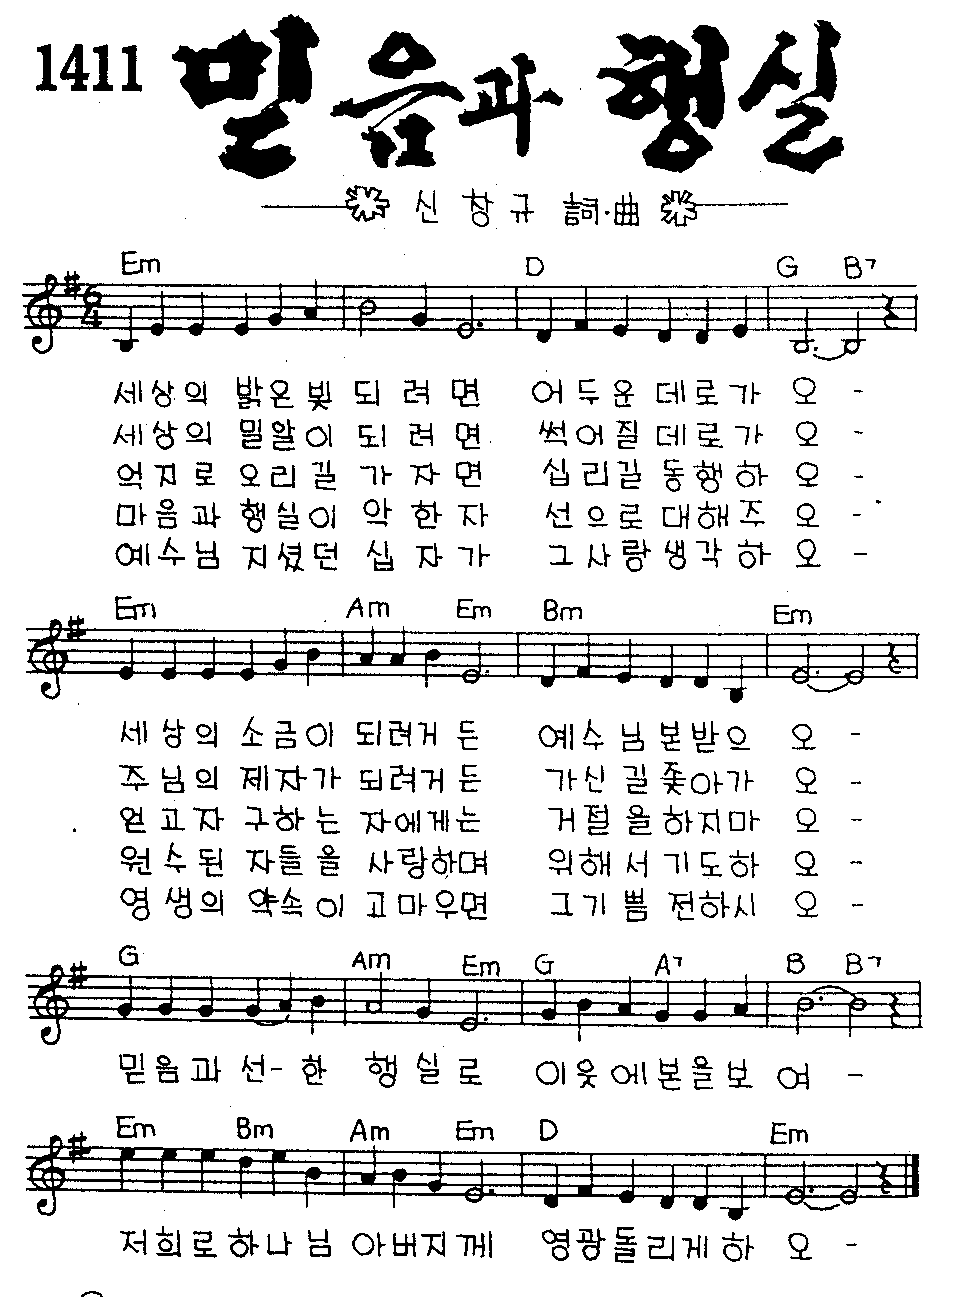 1411 믿음과 행실
신창규 詞·曲
Em D G B7
6
4
세상의 밝은빛 되려면 어두운데로가 오 -
세상의 밀알이 되려면 썩어질데로가 오 -
억지로 오리길 가자면 십리길 동행하 오 -
마음과 행실이 악한자 선으로대해주 오 -
예수님 지셨던 십자가 그사랑생각하 오 -
Em Am Em Bm Em
세상의 소금이 되려거든 예수님본받으 오 -
주님의 제자가 되려거든 가신길좇아가 오 -
얻고자 구하는 자에게는 거절을하지마 오 -
원수된 자들을 사랑하며 위해서기도하 오 -
영생의 약속이 고마우면 그기쁨전하시 오 -
G Am Em G A7 B B7
믿음과선-한 행실로 이웃에본을보 여 -
Em Bm Am Em D Em
저희로하나님 아버지께 영광돌리게하 오 -